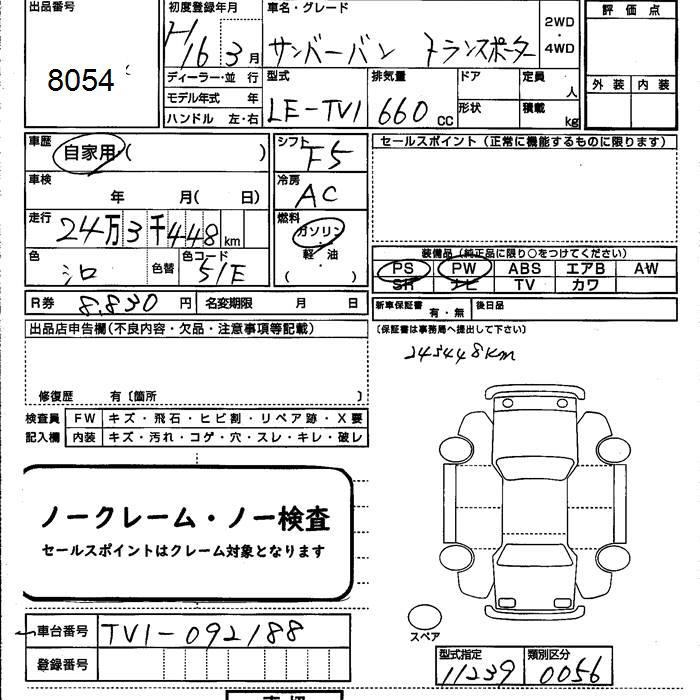 出品番号 初度登録年月 車名・グレード 評価点
8054 H16 3月 サンバーバン トランスポーター 2WD・4WD
ディーラー・並行 型式 排気量 ドア 定員 人 外装 内装
モデル年式 年 LE-TV1 660cc 形状 積載 kg
ハンドル 左・右
車歴 自家用・( ) シフト F5 セールスポイント(正常に機能するものに限ります)
車検 年 月( 日) 冷房 AC
走行 24万3千448km 燃料 ガソリン・軽・油 ( )
色 シロ 色替 色コード 51E 装備品(純正品に限り○をつけてください)
PS PW ABS エアB AW
SR ナビ TV カワ
R券 8,830円 名変期限 月 日 新車保証書 有・無 後日品
出品店申告欄(不良内容・欠品・注意事項等記載) (保証書は事務局へ提出して下さい)
243448km
修復歴 有〔箇所 〕
検査員 FW キズ・飛石・ヒビ割・リペア跡・X要
記入欄 内装 キズ・汚れ・コゲ・穴・スレ・キレ・破レ
ノークレーム・ノー検査
セールスポイントはクレーム対象となります
スペア
車台番号 TV1-092188
登録番号 型式指定 類別区分
11239 0056